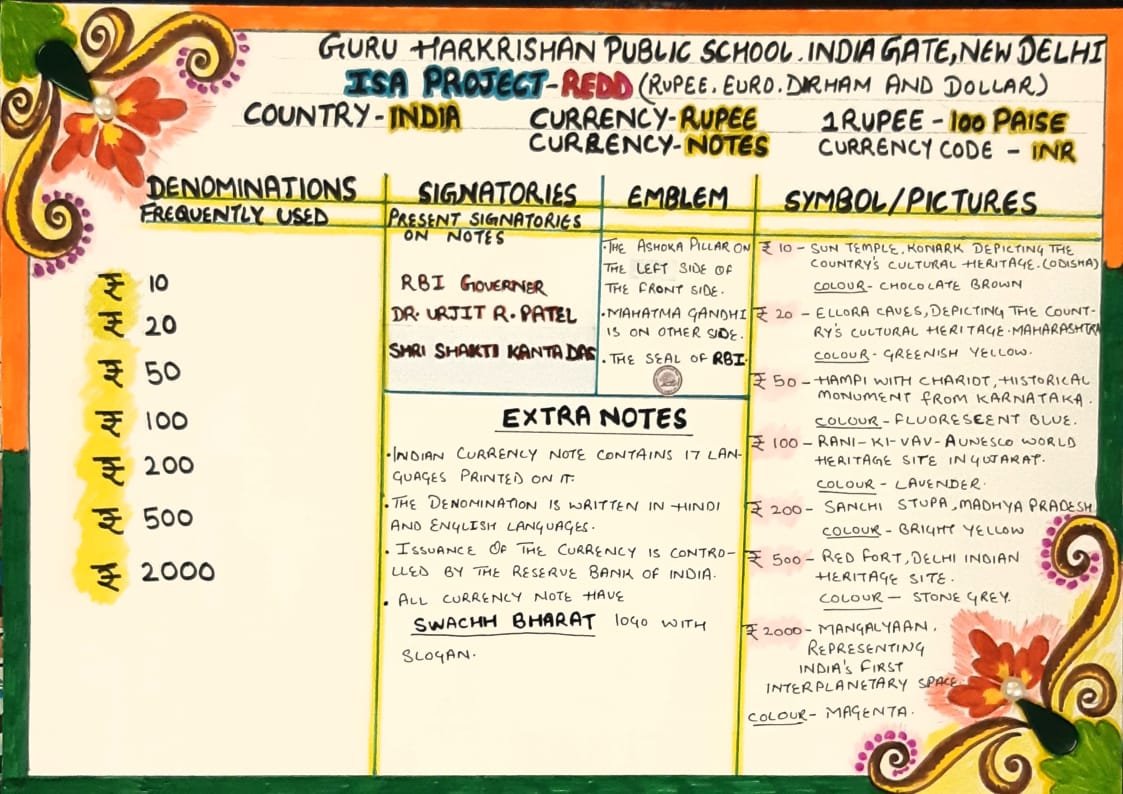 GURU HARKRISHAN PUBLIC SCHOOL. INDIA GATE, NEW DELHI
ISA PROJECT-REDD (RUPEE. EURO. DIRHAM AND DOLLAR)
COUNTRY-INDIA CURRENCY-RUPEE 1 RUPEE - 100 PAISE
CURRENCY-NOTES CURRENCY CODE - INR
DENOMINATIONS
FREQUENTLY USED
₹ 10
₹ 20
₹ 50
₹ 100
₹ 200
₹ 500
₹ 2000
SIGNATORIES
PRESENT SIGNATORIES
ON NOTES
RBI GOVERNER
DR. URJIT R. PATEL
SHRI SHAKTI KANTA DAS
EMBLEM
•THE ASHOKA PILLAR ON
THE LEFT SIDE OF
THE FRONT SIDE.
•MAHATMA GANDHI
IS ON OTHER SIDE.
•THE SEAL OF RBI.
EXTRA NOTES
•INDIAN CURRENCY NOTE CONTAINS 17 LAN-
GUAGES PRINTED ON IT.
•THE DENOMINATION IS WRITTEN IN HINDI
AND ENGLISH LANGUAGES.
•ISSUANCE OF THE CURRENCY IS CONTRO-
LLED BY THE RESERVE BANK OF INDIA.
•ALL CURRENCY NOTE HAVE
SWACHH BHARAT logo WITH
SLOGAN.
SYMBOL/PICTURES
₹ 10 - SUN TEMPLE, KONARK DEPICTING THE
COUNTRY'S CULTURAL HERITAGE. (ODISHA)
COLOUR- CHOCOLATE BROWN
₹ 20 - ELLORA CAVES, DEPICTING THE COUNT-
RY'S CULTURAL HERITAGE. MAHARASHTRA
COLOUR- GREENISH YELLOW.
₹ 50 - HAMPI WITH CHARIOT, HISTORICAL
MONUMENT FROM KARNATAKA.
COLOUR - FLUORESEENT BLUE.
₹ 100 - RANI-KI-VAV-A UNESCO WORLD
HERITAGE SITE IN GUJARAT.
COLOUR - LAVENDER.
₹ 200 - SANCHI STUPA, MADHYA PRADESH
COLOUR - BRIGHT YELLOW
₹ 500 - RED FORT, DELHI INDIAN
HERITAGE SITE.
COLOUR - STONE GREY.
₹ 2000 - MANGALYAAN.
REPRESENTING
INDIA'S FIRST
INTERPLANETARY SPACE.
COLOUR- MAGENTA.